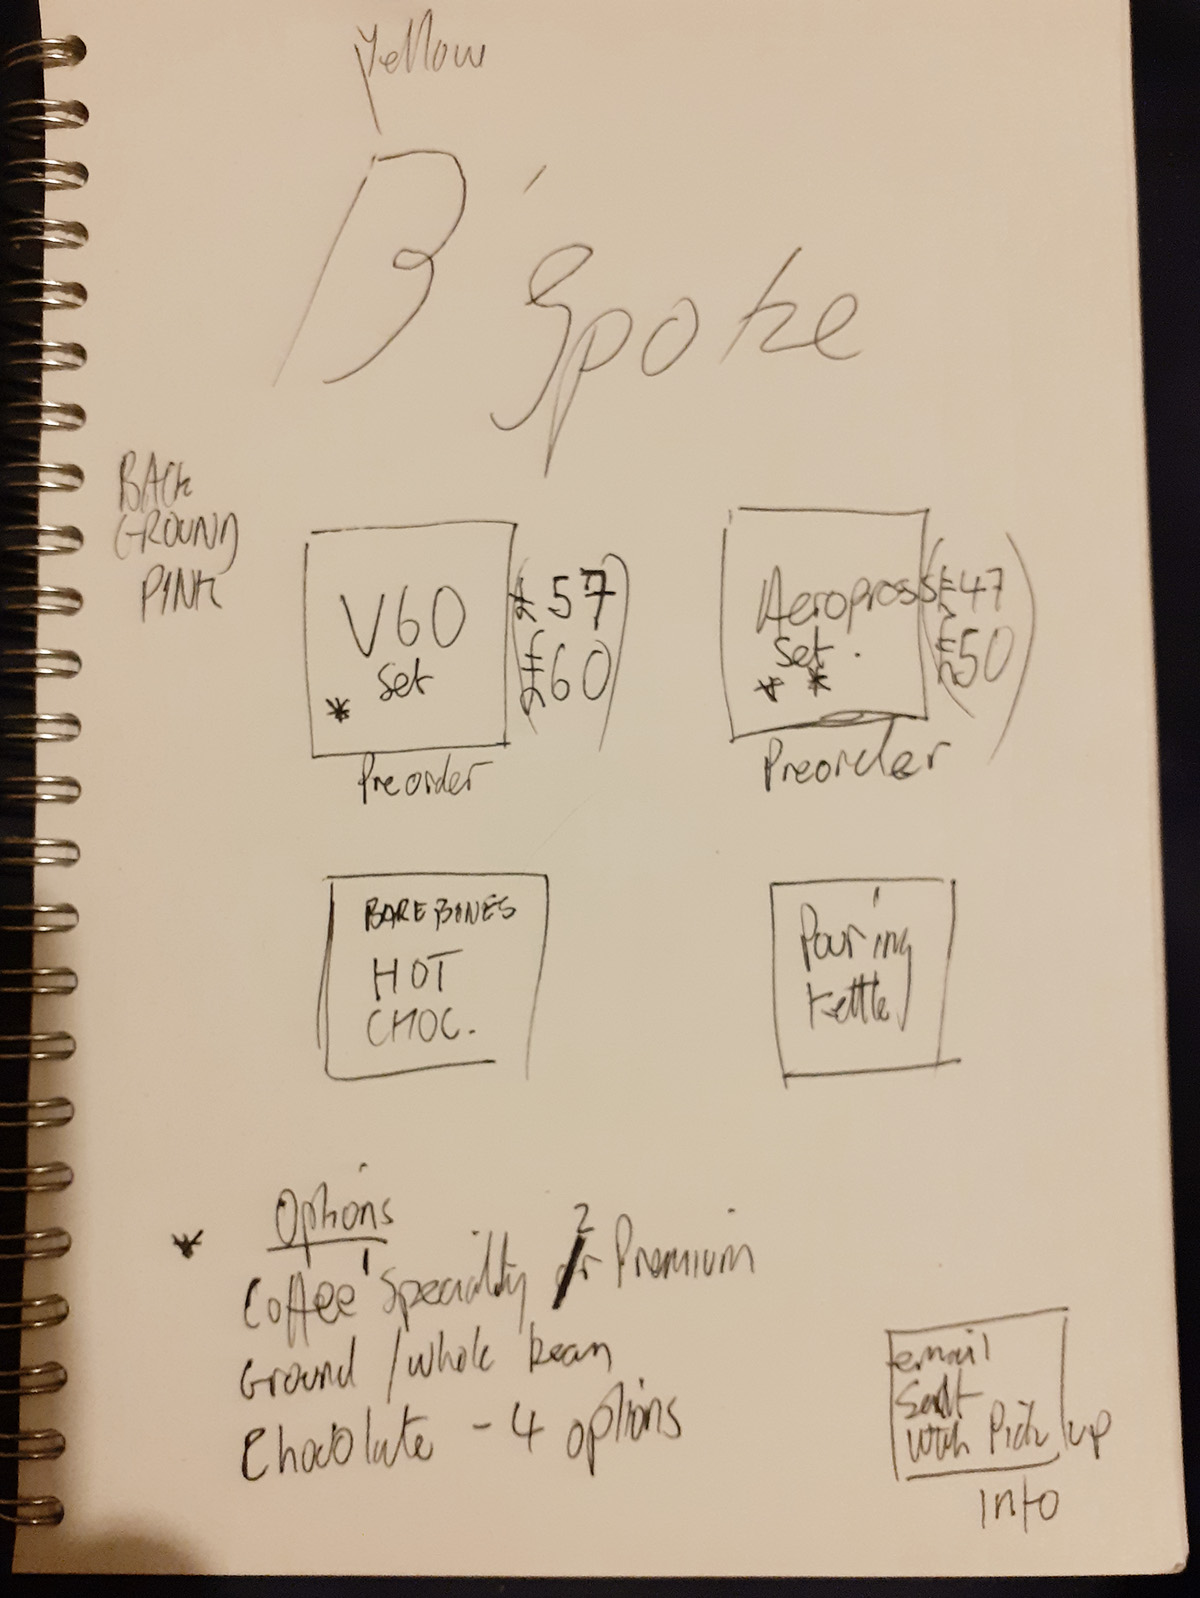 Yellow
B'Spoke
BACK
GROUND
PINK
V60
Set
*
£57
£60
Preorder
Aeropress
Set.
* *
£47
£50
Preorder
BARE BONES
HOT
CHOC.
Pouring
kettle
* Options
Coffee 1 Speciality 2 Premium
Ground / whole bean
Chocolate - 4 options
email
Sent
with Pick up
info